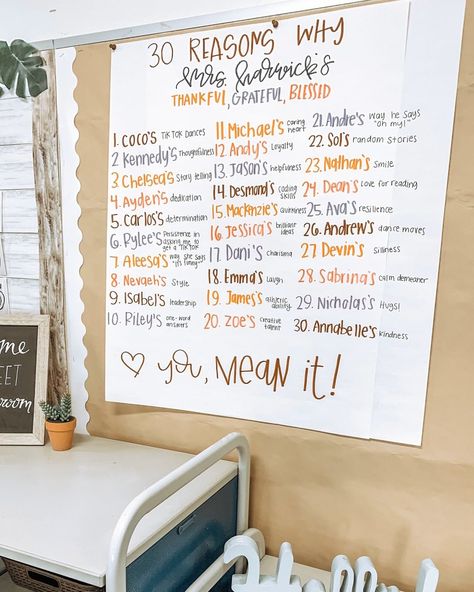 30 REASONS WHY
Mrs. Harwick's
THANKFUL, GRATEFUL, BLESSED
1. COCO'S TIKTOK DANCES
2 Kennedy's Thoughtfulness
3 Chelsea's Story telling
4. Ayden's dedication
5. Carlos's determination
6. Rylee's Persistence in asking me to get a TIKTOK
7. Aleesa's way she says "it's funny"
8. Nevaeh's Style
9. Isabel's leadership
10. Riley's one-word answers
11. Michael's caring heart
12. Andy's Loyalty
13. Jason's helpfulness
14. Desmond's coding skills
15. Mackenzie's Quirkiness
16 Jessica's brilliant ideas
17 Dani's charisma
18. Emma's Laugh
19. James's athletic ability
20. Zoe's creative talent
21. Andre's Way he says "oh my!"
22. Sol's random stories
23. Nathan's smile
24. Dean's Love for reading
25. Ava's resilience
26. Andrew's dance moves
27 Devin's Silliness
28. Sabrina's calm demeanor
29. Nicholas's Hugs!
30. Annabelle's kindness
you, Mean it!
me
EET
room